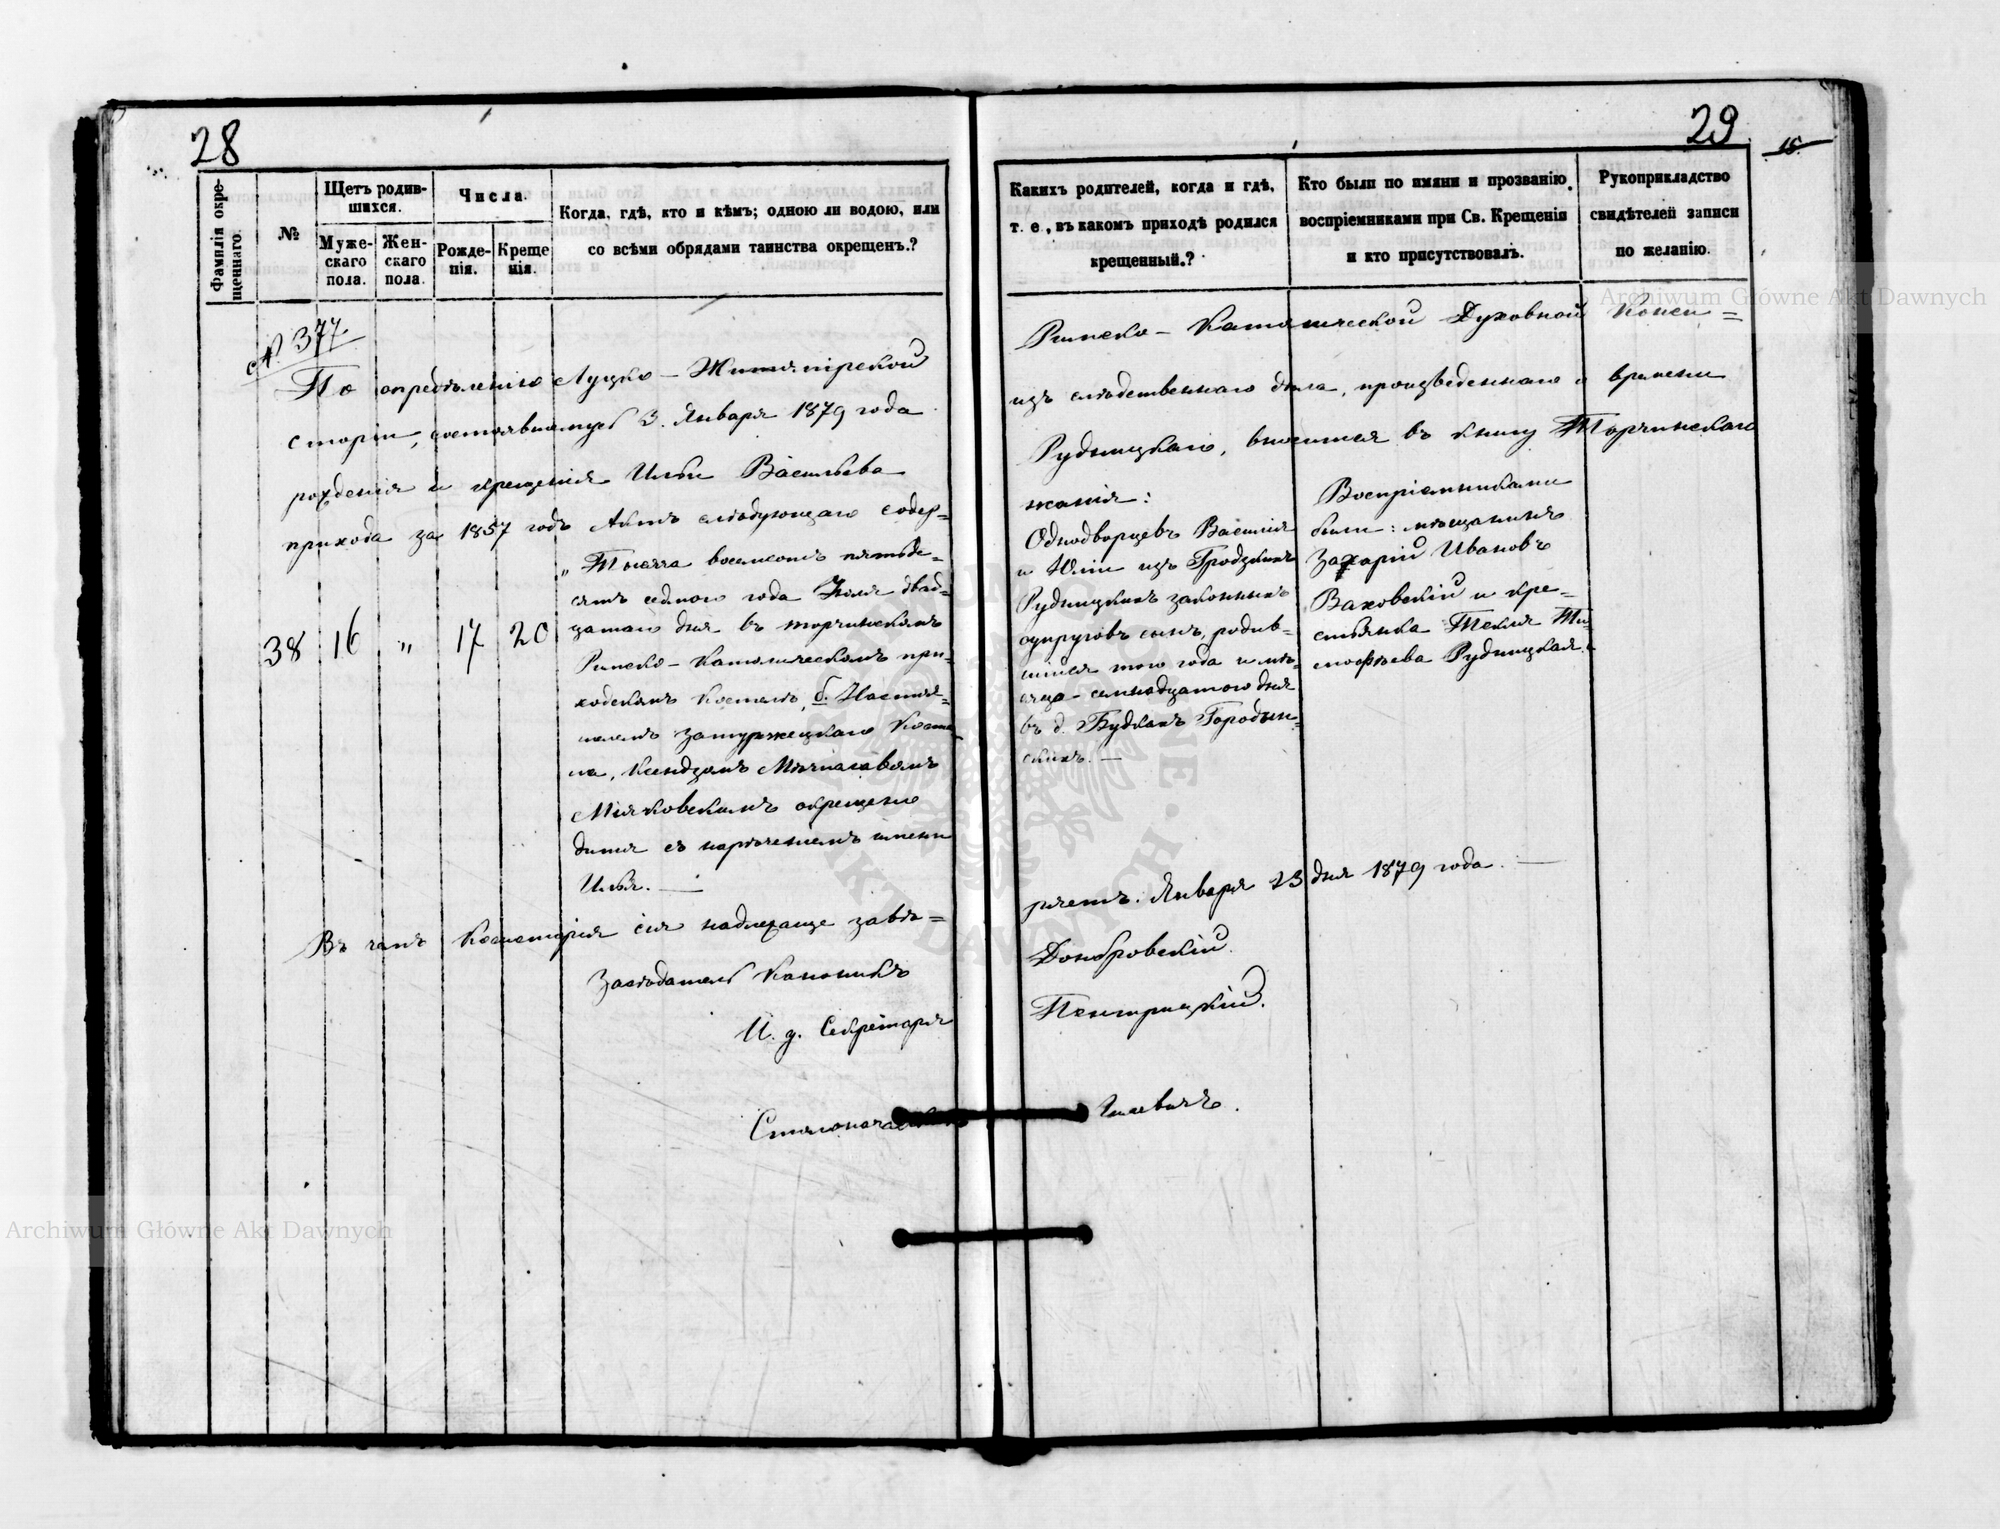 28
Фамилія окре-
щеннаго.
№
Щетъ родив-
шихся.
Муже-
скаго
пола.
Жен-
скаго
пола.
Числа.
Рожде-
нія.
Креще
нія.
Когда, гдѣ, кто и кѣмъ; одною ли водою, или
со всѣми обрядами таинства окрещенъ.?
№. 377
По опредѣленію Луцко-Житомірской
сторіи, состоявшемуся 3. Января 1879 года
рожденія и крещенія Ильи Васильева
прихода за 1857 годъ Актъ слѣдующаго содер=
38 16 " 17 20
„Тысяча восемсотъ пятьде=
сятъ седмого года Іюля двад=
цатаго дня въ Торчинскомъ
Римско-Католическомъ при=
ходскомъ Костелѣ, б. Настоя=
телемъ Затуржецкаго Косте
ла, Ксендзомъ Мѣчиславомъ
Міяковскимъ окрещено
дитя съ нареченіемъ имени
Илья. —
Въ чемъ Консисторія сія надлежаще завѣ=
Засѣдатель Каноникъ
И. д. Секретаря
Столоначальникъ
29
15.
Какихъ родителей, когда и гдѣ,
т. е., въ какомъ приходѣ родился
крещенный.?
Кто были по имяни и прозванію
воспріемниками при Св. Крещеніи
и кто присутствовалъ.
Рукоприкладство
свидѣтелей записи
по желанію.
Римско-Католической Духовной Конси=
изъ слѣдственнаго дѣла, произведеннаго о времени
Рудницкаго, вносится въ книгу Торчинскаго
жанія:
Однодворцевъ Василія
и Юліи изъ Гродзкихъ
Рудницкихъ законныхъ
супруговъ сынъ, родив=
шійся того года и мѣ=
сяца семнадцатого дня
въ д. Будкахъ Городын=
скихъ. —
Воспріемниками
были: мѣщанинъ
Захарій Ивановъ
Ваховскій и кре=
стьянка Текля Ти=
мофѣева Рудницкая."
ряетъ. Января 23 дня 1879 года. —
Домбровскій.
Пенгрицкій.
Archiwum Główne Akt Dawnych
Archiwum Główne Akt Dawnych